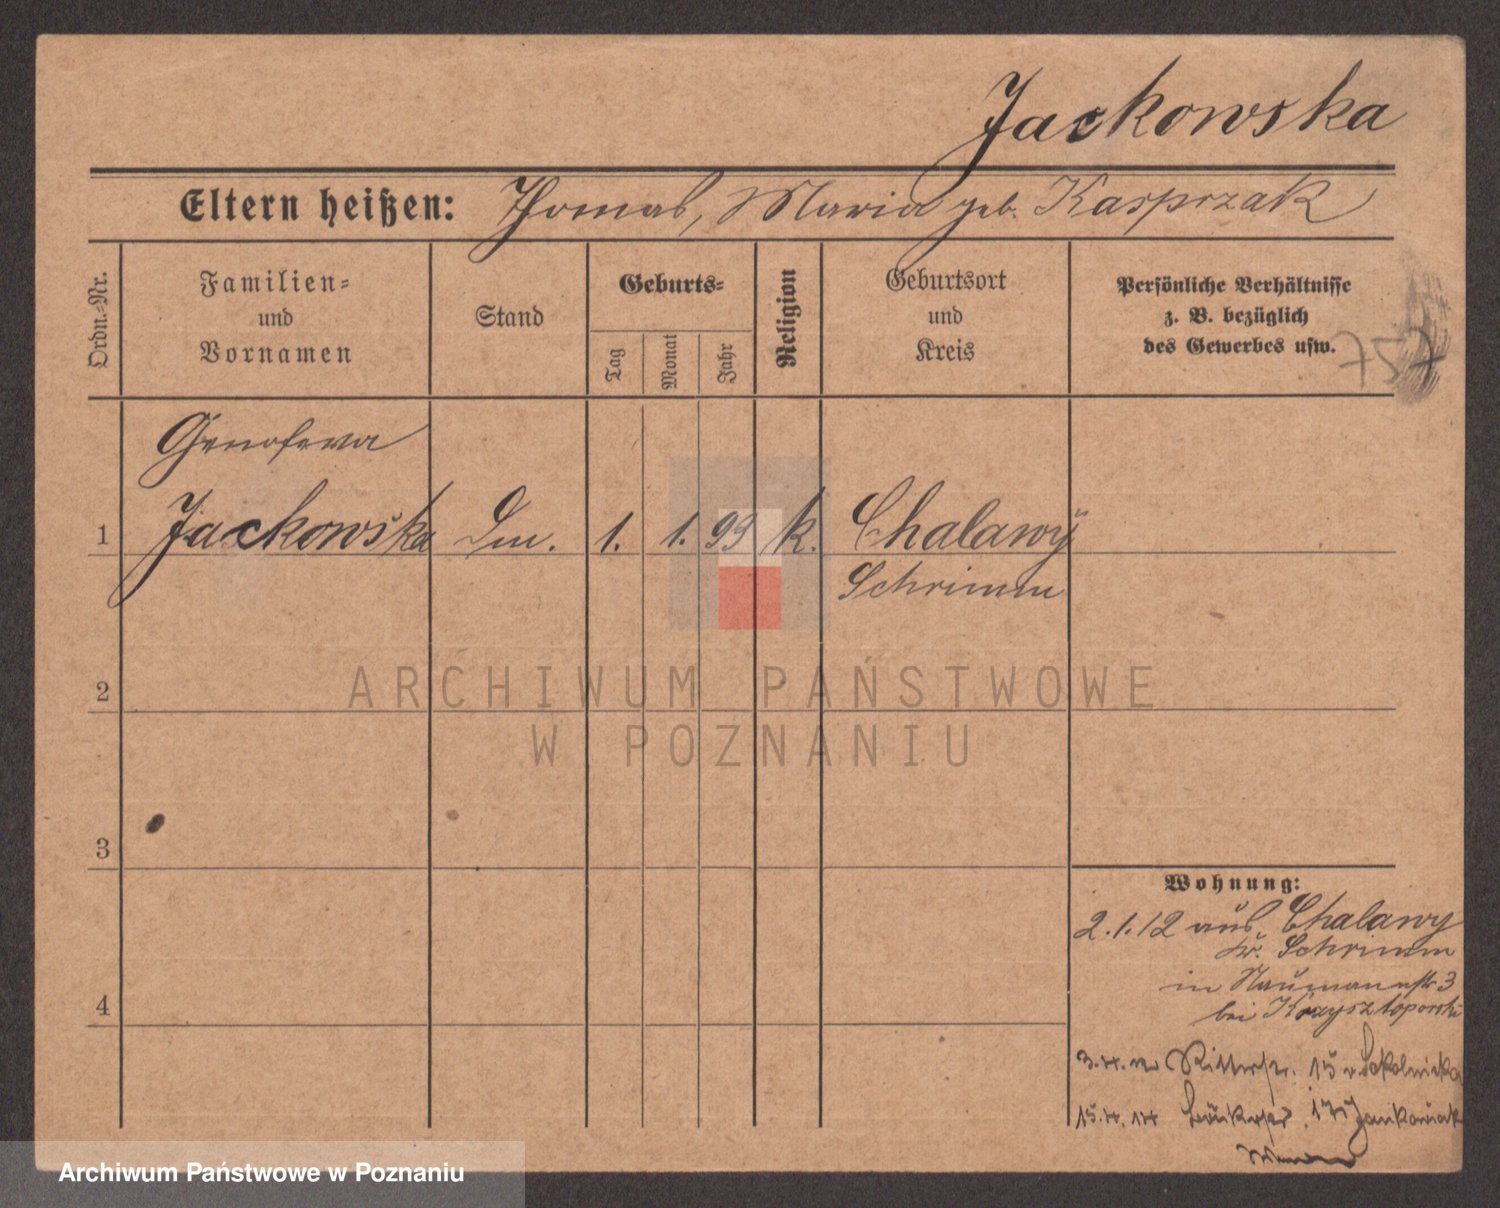 Jackowska
Eltern heißen: Thomas, Maria geb. Kasprzak
Ordn.-Nr.
Familien-
und
Vornamen
Stand
Geburts-
Tag
Monat
Jahr
Religion
Geburtsort
und
Kreis
Persönliche Verhältnisse
z. B. bezüglich
des Gewerbes usw.
757
Genofeva
1 Jackowska 1. 1. 99 k. Chalawy
Schrimm
ARCHIWUM PAŃSTWOWE
W POZNANIU
2
3
4
Wohnung:
2.1.12 aus Chalawy
Kr. Schrimm
in Naumannstr 3
bei Krzysztoporski
3.4. Ritterstr. 15 v. Sokolnicka
15.4.14 Jankowiak
Archiwum Państwowe w Poznaniu